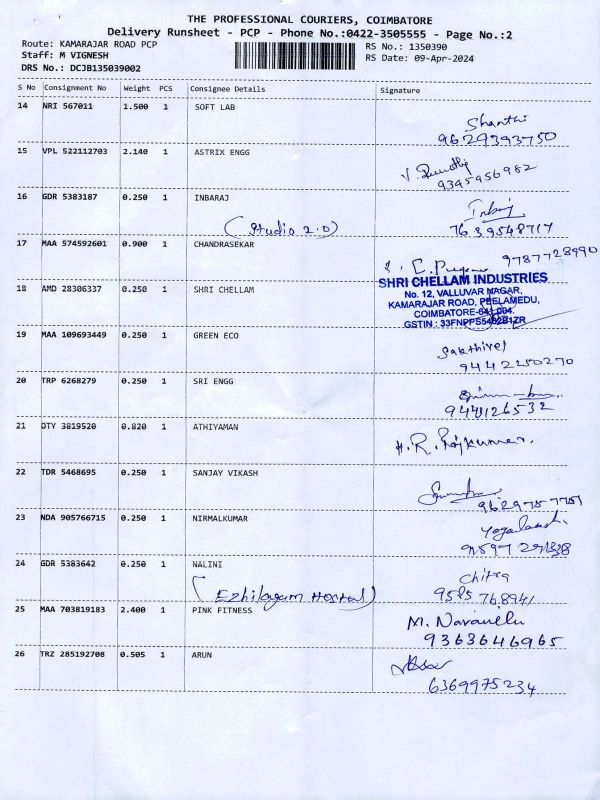 THE PROFESSIONAL COURIERS, COIMBATORE
Delivery Runsheet - PCP - Phone No.:0422-3505555 - Page No.:2
Route: KAMARAJAR ROAD PCP
RS No.: 1350390
Staff: M VIGNESH
RS Date: 09-Apr-2024
DRS No.: DCJB135039002
S No Consignment No Weight PCS Consignee Details Signature
14 NRI 567011 1.500 1 SOFT LAB
Shanthi
9629393750
15 VPL 522112703 2.140 1 ASTRIX ENGG
9345956982
16 GDR 5383187 0.250 1 INBARAJ
Inbaraj
(Studio 2.0) 7639548717
17 MAA 574592601 0.900 1 CHANDRASEKAR
9787728990
18 AMD 28306337 0.250 1 SHRI CHELLAM
SHRI CHELLAM INDUSTRIES
No. 12, VALLUVAR NAGAR,
KAMARAJAR ROAD, PEELAMEDU,
COIMBATORE-641 004.
19 MAA 109693449 0.250 1 GREEN ECO
Sakthivel
9442250270
20 TRP 6268279 0.250 1 SRI ENGG
21 DTY 3819520 0.820 1 ATHIYAMAN
H.R. Rajkumar.
22 TDR 5468695 0.250 1 SANJAY VIKASH
23 NDA 905766715 0.250 1 NIRMALKUMAR
24 GDR 5383642 0.250 1 NALINI
Chitra
(Ezhilagam Hostal) 9585768941
25 MAA 703819183 2.400 1 PINK FITNESS
M. Navanelu
9363646965
26 TRZ 285192708 0.505 1 ARUN
6369975234